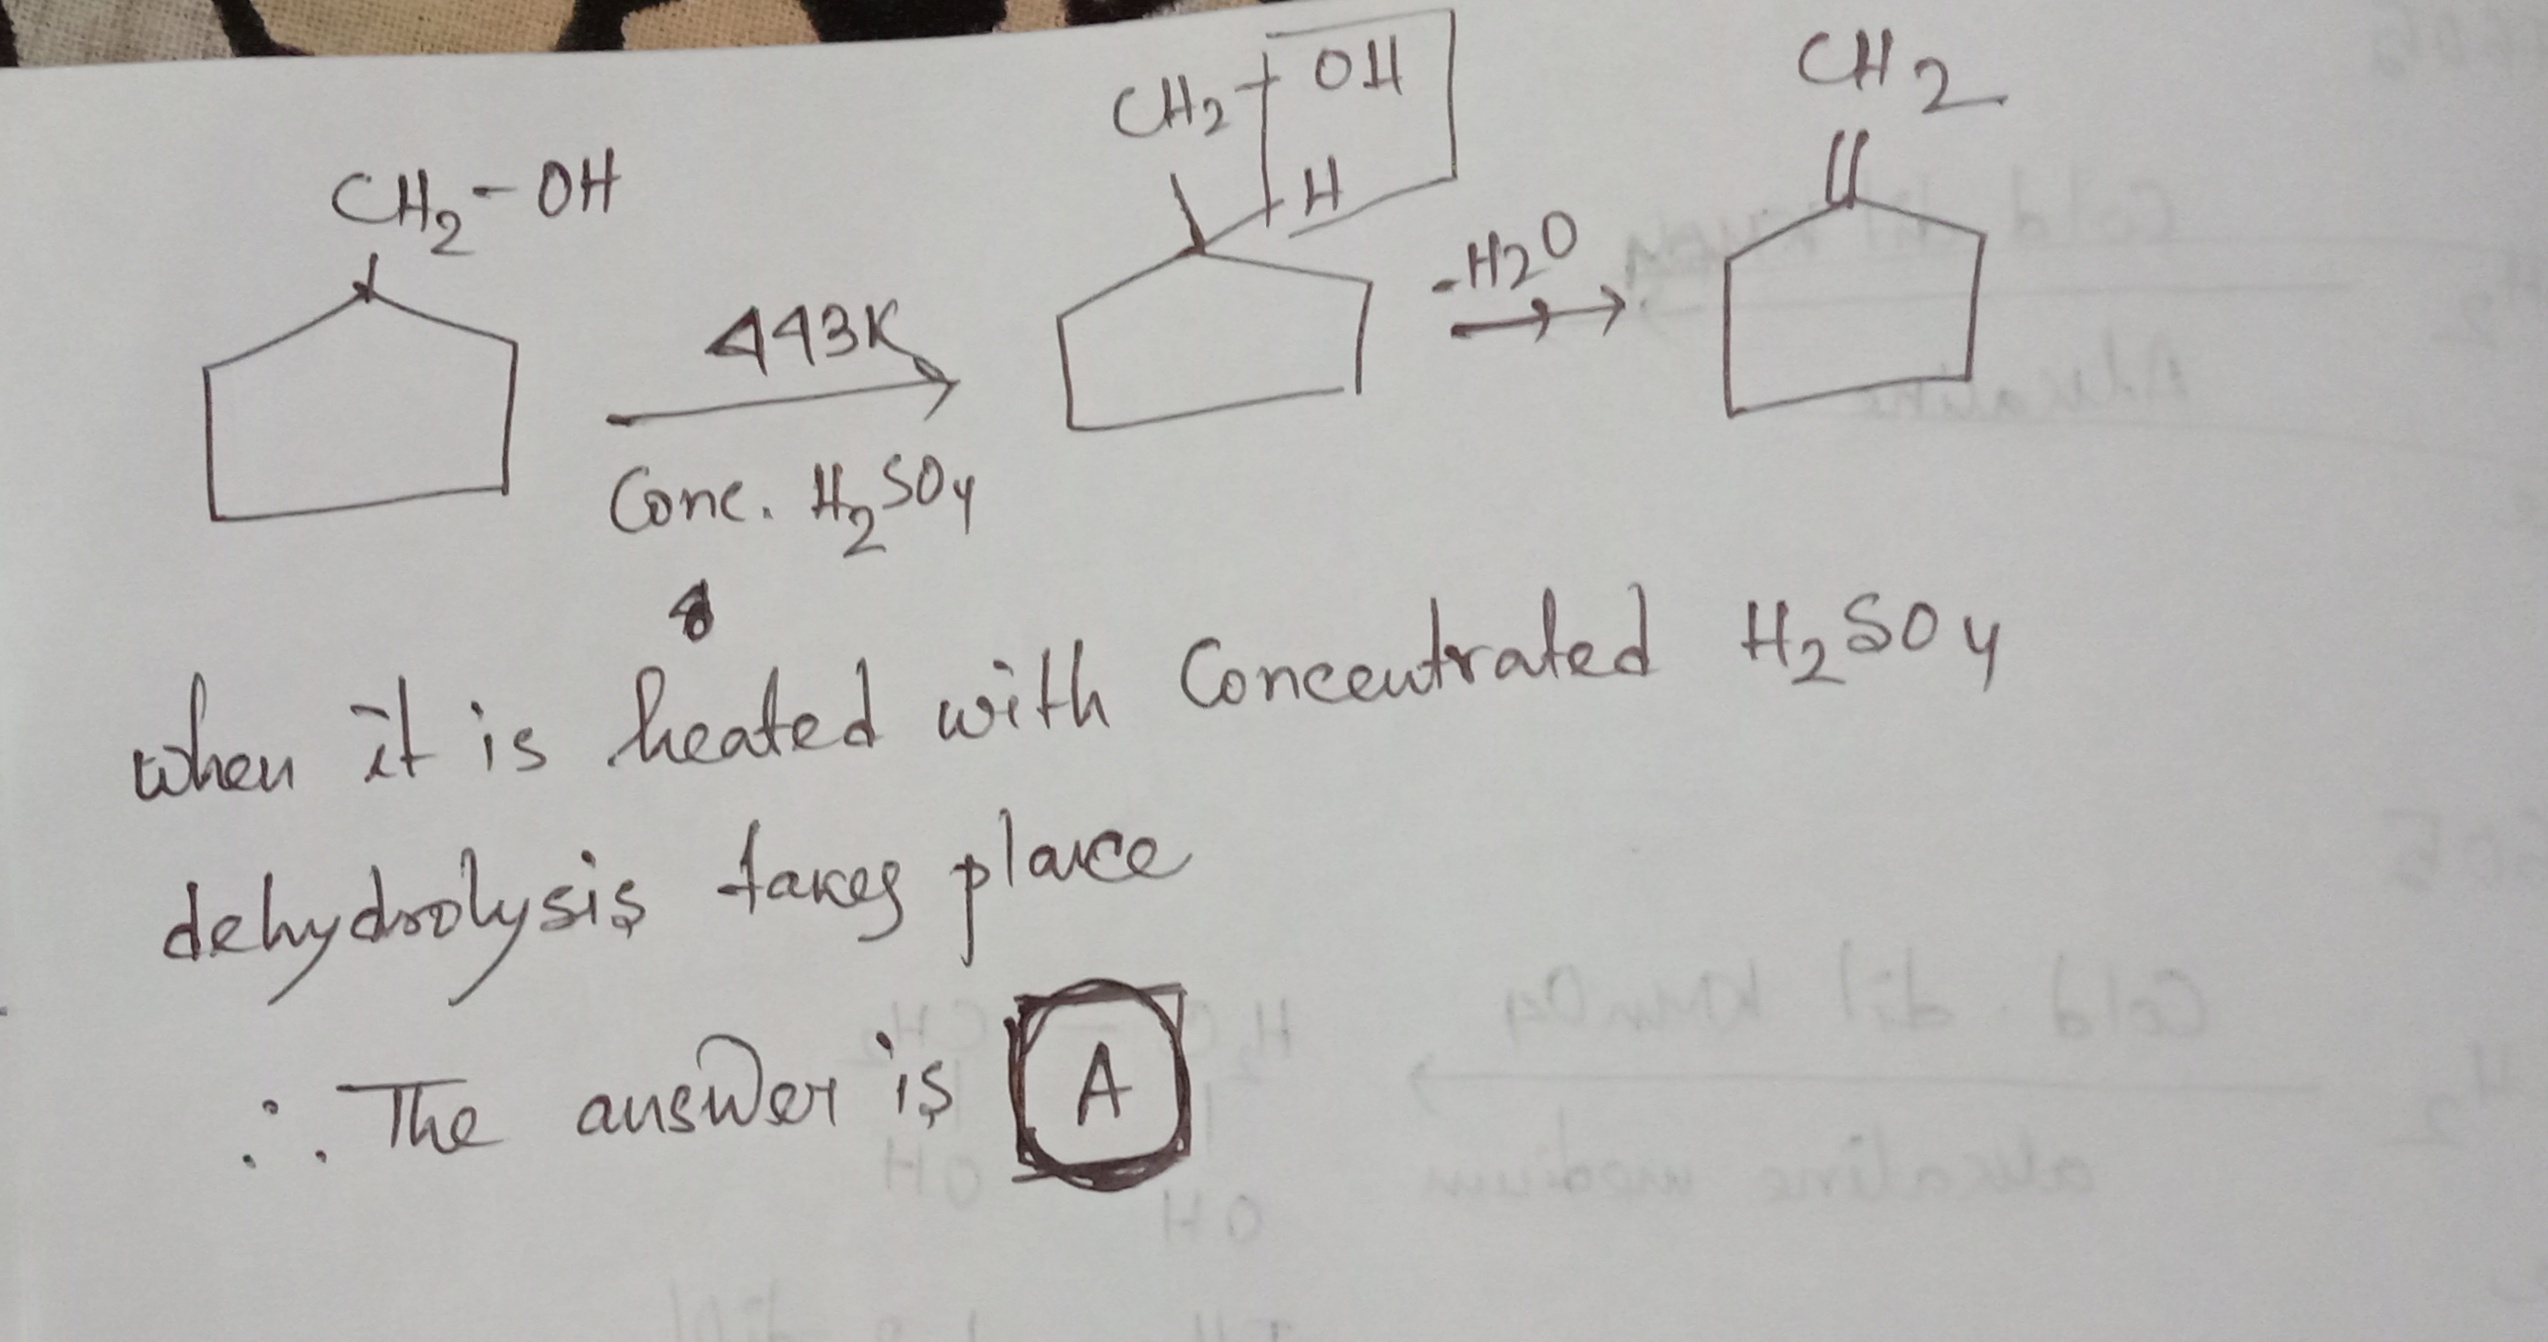 CH2 - OH
443K
Conc. H2SO4
CH2 OH
H
-H2O
CH2
when it is heated with Concentrated H2SO4
dehydrolysis takes place
∴ The answer is A